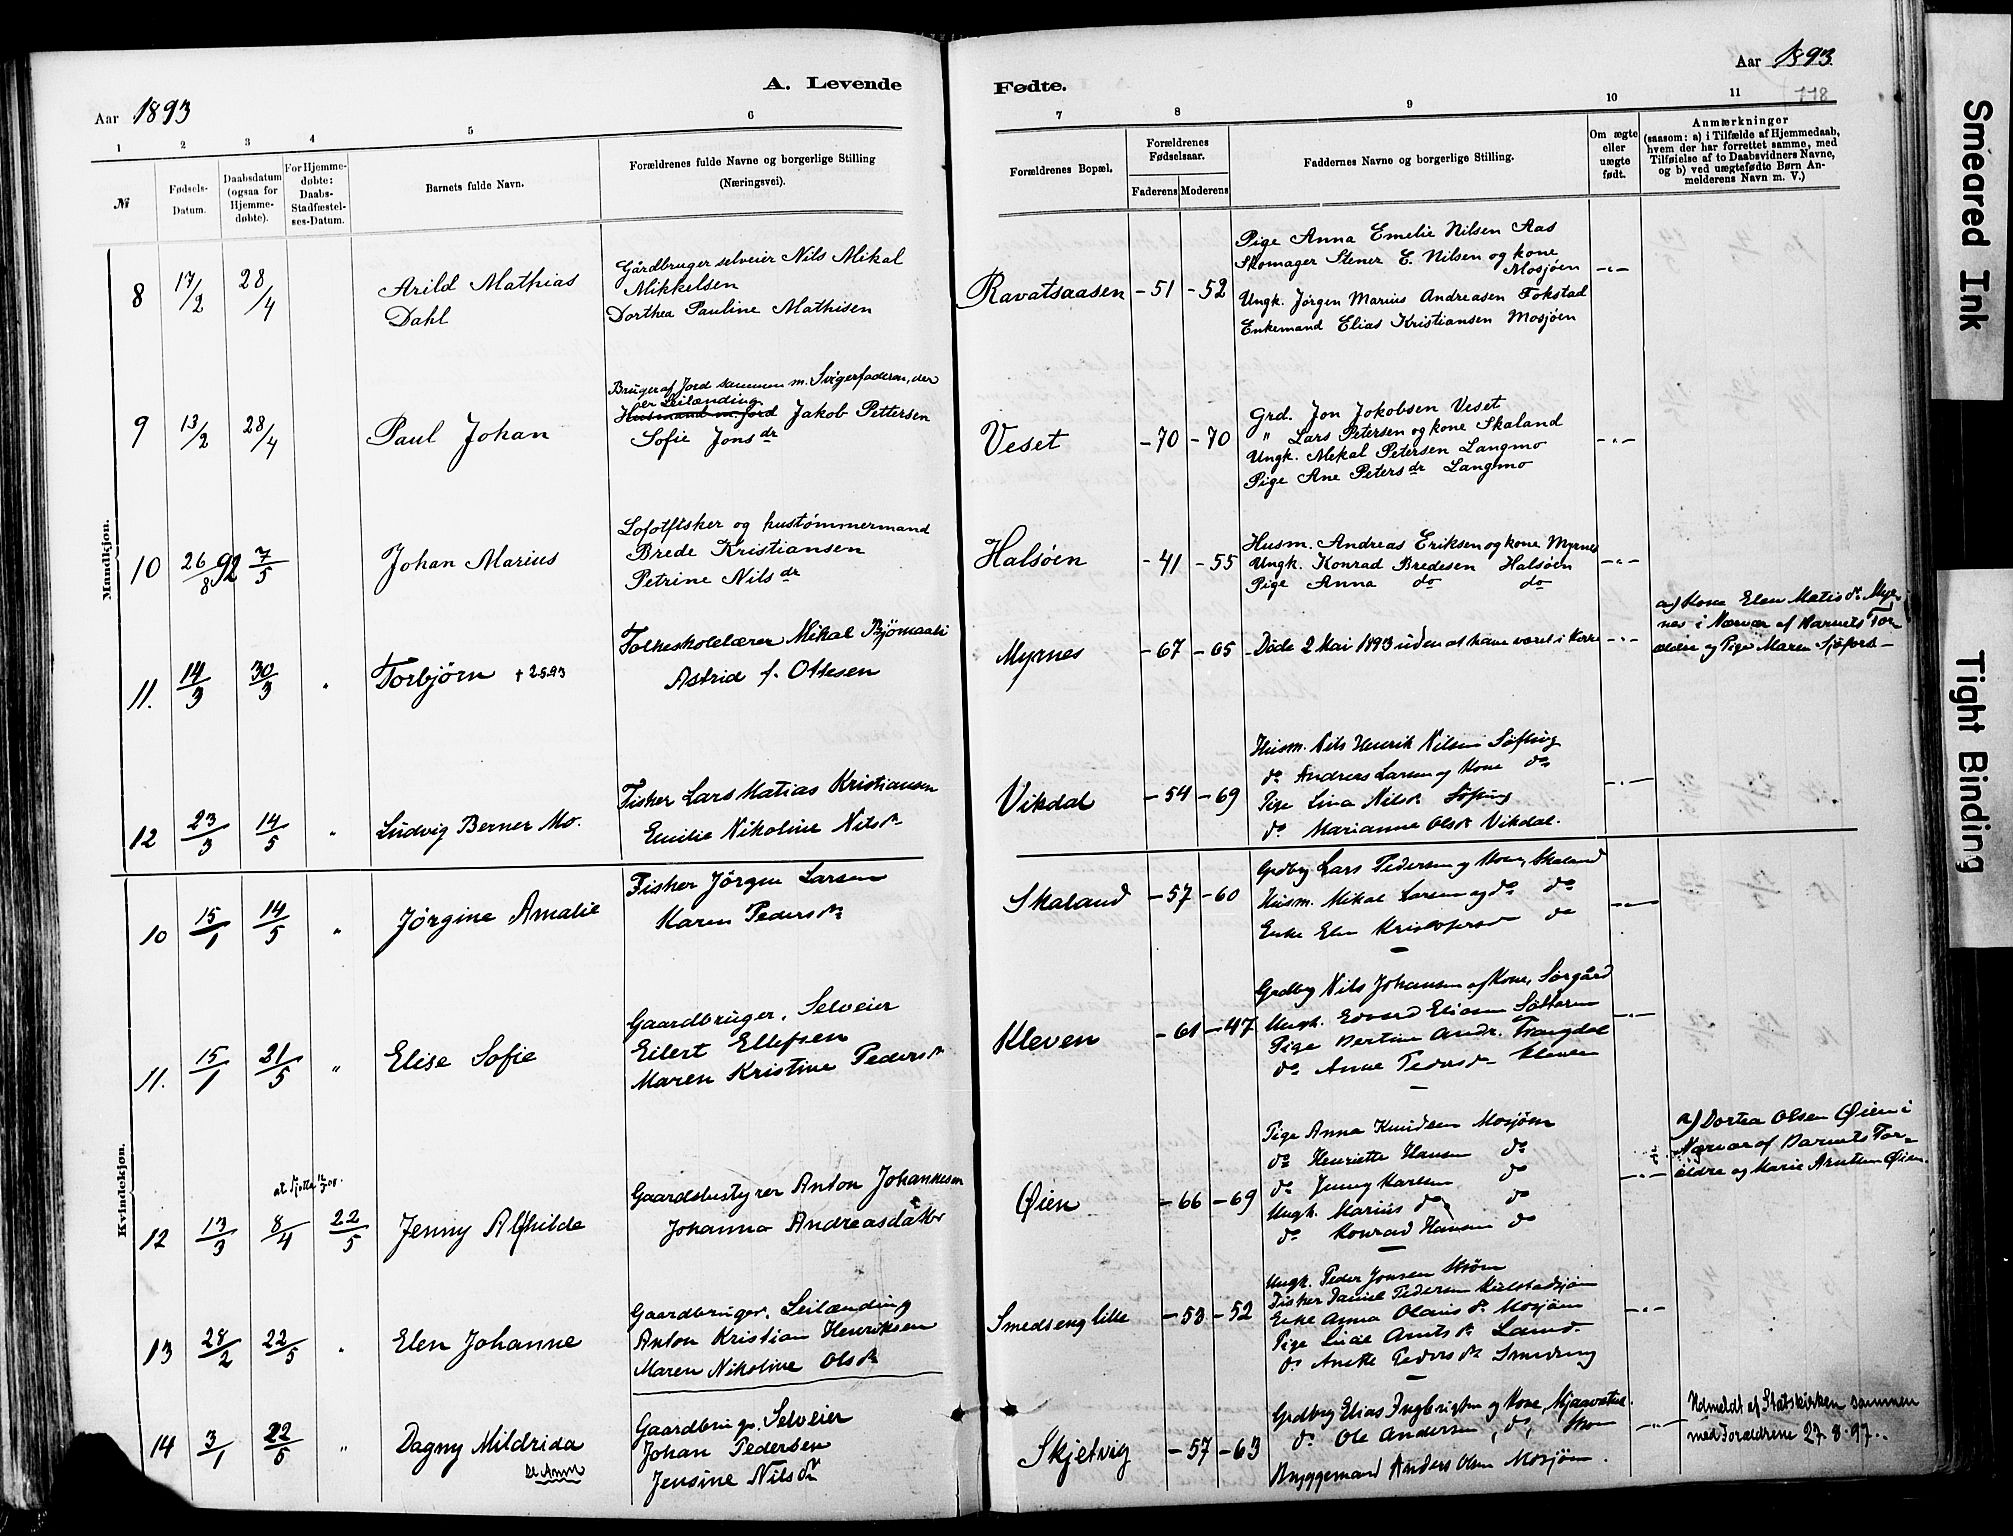 Aar 1893
A. Levende
Fødte.
Aar 1893
118
1 2 3 4 5 6
7 8 9 10 11
№
Fødsels-
Datum.
Daabsdatum
(ogsaa for
Hjemme-
døbte).
For Hjemme-
døbte:
Daabs-
Stadfæstel-
ses-Datum.
Barnets fulde Navn.
Forældrenes fulde Navne og borgerlige Stilling
(Næringsvei).
Forældrenes Bopæl.
Forældrenes
Fødselsaar.
Faderens Moderens
Faddernes Navne og borgerlige Stilling.
Om ægte
eller
uægte
født.
Anmærkninger
(saasom: a) i Tilfælde af Hjemmedaab,
hvem der har forrettet samme, med
Tilføielse af to Daabsvidners Navne,
og b) ved uægtefødte Børn An-
melderens Navn m. V.)
Mandkjøn.
8 17/2 28/4
Arild Mathias
Dahl
Gårdbruger selveier Nils Mikal
Mikkelsen
Dorthea Pauline Mathisen
Ravatsaasen -51 -52
Pige Anna Emelie Nilsen Aas
Skomager Stener E. Nilsen og kone
Mosjøen
Ungk. Jörgen Marius Andreasen Fokstad
Enkemand Elias Kristiansen Mosjöen
-"-
9 13/2 28/4
Paul Johan
Bruger af Jord sammen m. Svigerfaderen, der
er Leilænding
Husmand m. jord Jakob Pettersen
Sofie Jonsdr
Veset -70 -70
Grd. Jon Jokobsen Veset
" Lars Petersen og kone Skaland
Ungk. Mekal Petersen Langmo
Pige Ane Petersdr Langmo
-"-
10 26/8 92 7/5
Johan Marius
Lofotfisker og hustømmermand
Brede Kristiansen
Petrine Nilsdr
Halsöen -41 -55
Husm. Andreas Eriksen og kone Myrnes
Ungk. Konrad Bredesen Halsöen
Pige Anna do do
-"-
11. 14/3 30/3 "
Torbjörn + 2.5.93
Folkeskolelærer Mikal Bjömaali
Astrid f. Ottesen
Myrnes -67 -65
Döde 2 Mai 1893 uden at have været i Kirke
-"-
a) Kone Elen Matisdr Myr-
nes i Nærvær af Barnets For-
ældre og Pige Maren Sjøfors-
12 23/3 14/5 "
Ludvig Berner Mo.
Fisker Lars Matias Kristiansen
Emilie Nikoline Nilsdr
Vikdal -54 -69
Husm. Nils Henrik Nilsen Söfting
do Andreas Larsen og Kone do
Pige Lina Nilsdr Söfting
do Marianne Olsdr Vikdal.
-"-
Kvindekjøn.
10 15/1 14/5 "
Jørgine Amalie
Fisker Jörgen Larsen
Karen Pedersdr
Skaland -57 -60
Grdbrg Lars Pedersen og Kone, Skaland
Husm. Mikal Larsen og do do
Enke Elen Kristofersd do
-"-
11. 15/1 21/5 "
Elise Sofie
Gaardbruger, Selveier
Eilert Ellefsen
Maren Kristine Pedersdr
Kleven -61 -47
Grdbrg Nils Johansen og Kone, Sörgård
Ungk. Edvard Eliasen
Pige Bertine Andr.
do Anne Pedersdr Kleven
-"-
at Tjøtta 12/7 08
12 13/3 8/4 22/5
Jenny Alfhilde
Gaardsbestyrer Anton Johannesen
Johanna Andreasdatter
Øien -66 -69
Pige Anna Knudsen Mosjöen
do Henriette Hansen do
do Jenny Karlsen do
Ungk. Marius do do
do Konrad Hansen do
-"-
a) Dortea Olsen Øien i
Nærvær af Barnets For-
ældre og Marie Arntsen Øien.
13 28/2 22/5 "
Elen Johanne
Gaardbruger, Leilænding
Anton Kristian Henriksen
Maren Nikoline Olsdr
Smedseng lille -53 -52
Ungk. Peder Jonsen Strøm
Fisker Daniel Pedersen
Enke Anna Olausdr Mosjöen
Pige Arntsdr
do Anette Pedersdr Smedseng
-"-
14 3/1 22/5 "
Dagny Mildrida
Gaardbruger, Selveier
Johan Pedersen
Jensine Nilsdr
Skjetvig -57 -63
Grdbrg Elias Ingbrigtsen og Kone,
do Ole Andersen, do,
Bryggemand Anders Olsen Mosjöen.
-"-
Udmeldt af Statskirken sammen
med Forældrene 27.8.97.
Smeared Ink
Tight Binding